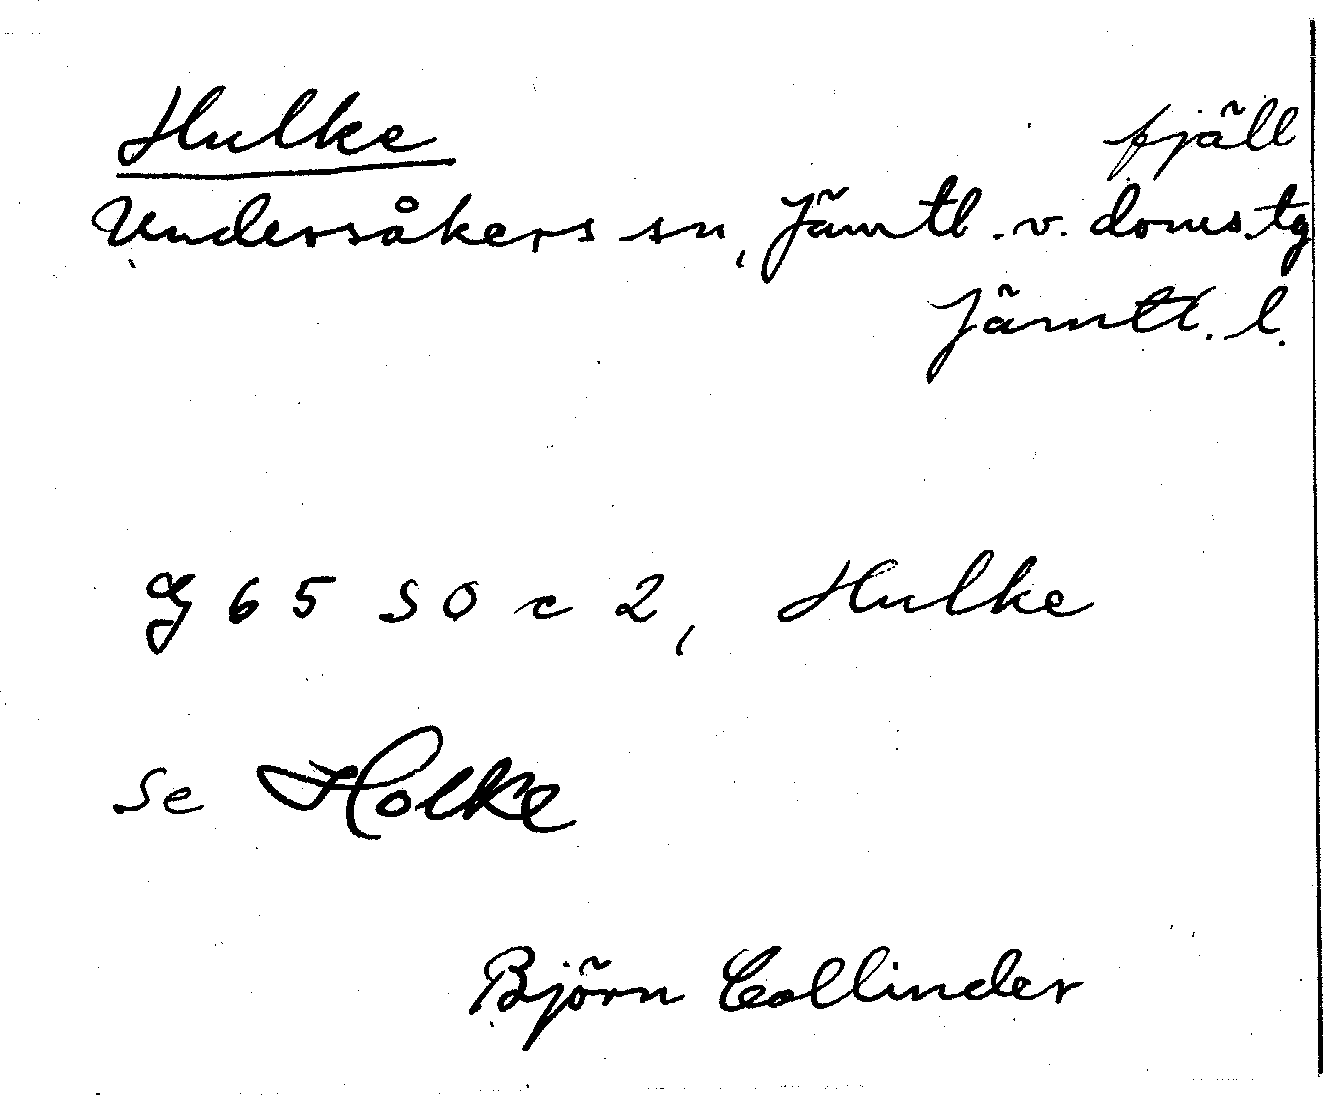 Hulke fjäll
Undersåkers sn, Jämtl. v. doms.tg
Jämtl. l.
G 65 SO c 2, Hulke
se Holke
Björn Collinder